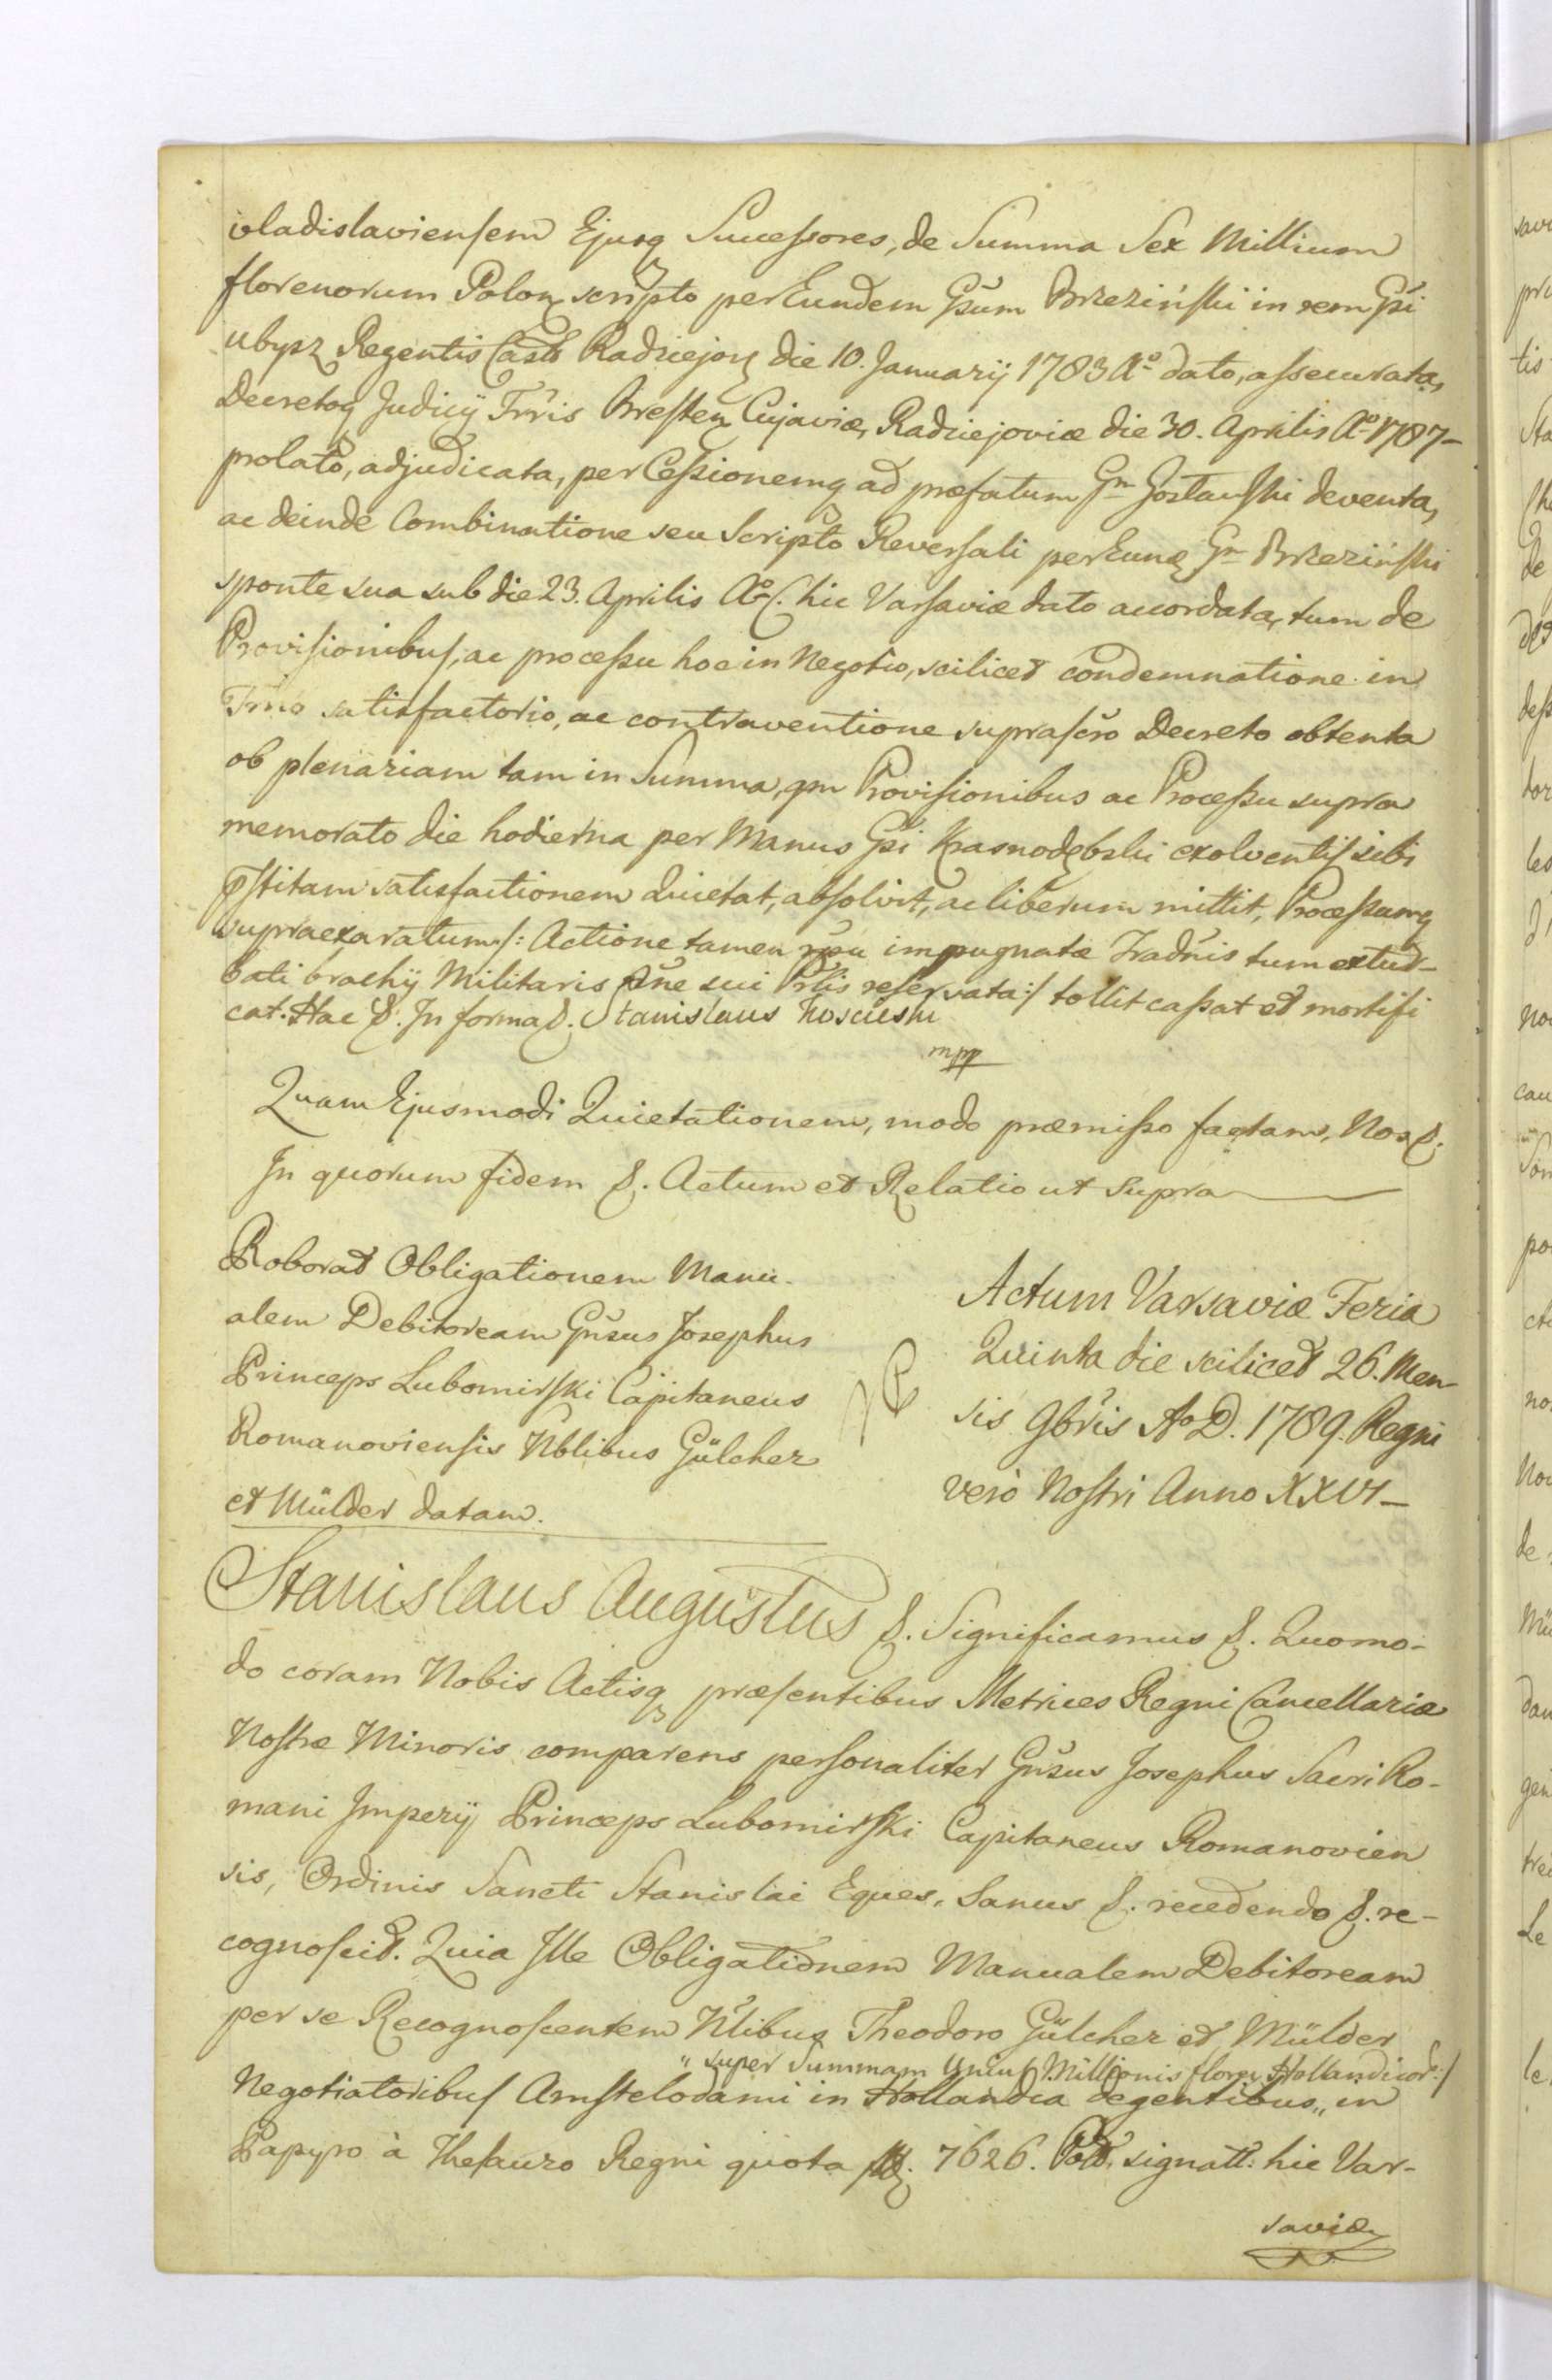 vladislaviensem Ejusq Successores, de Summa Sex Millium
florenorum Polon scripto per Eundem Gsum Brzeziński in rem Gsi
Ubysz Regentis Castr Radziejov die 10. Januarij 1783 Aº dato, assecurata,
Decretoq Judicij Trris Bresten Cujaviæ, Radziejoviæ die 30. Aprilis Aº 1787–
prolato, adjudicata, per Cessionemq ad præfatum Gm Gostawski deventa,
ac deinde Combinatione seu Scripto Reversali per Eund Gm Brzeziński
sponte sua sub die 23. Aprilis Aº C. hic Varsaviæ dato accordata, tum de
Provisionibus, ac processu hoc in Negotio, scilicet condemnatione in
Trno satisfactorio, ac contraventione suprascro Decreto obtenta
ob plenariam tam in Summa, qm Provisionibus ac Processu supra
memorato die hodierna per Manus Gsi Krasnodębski exolventis sibi
pstitam satisfactionem Quietat, absolvit, ac liberum mittit, Processumq
supraexaratum /: Actione tamen rõe impugnatæ Tradnis tum extur–
bati brachij Militaris Pne sui Prlis reservata :/ tollit cassat et mortifi
cat. Hac &. In forma &. Stanislaus Kościeski
mpp
Quam Ejusmodi Quietationem, modo præmisso factam, Nos &.
In quorum fidem &. Actum et Relatio ut supra
Roborat Obligationem Manu-
alem Debitoream Gnsus Josephus
Princeps Lubomirski Capitaneus
Romanoviensis Nblibus Gülcher
et Mülder datam.
Actum Varsaviæ Feria
Quinta die scilicet 26. Men-
sis 9bris Ao D. 1789. Regni
verò Nostri Anno XXVI–
Stanislaus Augustus &. Significamus &. Quomo-
do coram Nobis Actisq præsentibus Metrices Regni Cancellariæ
Nostræ Minoris comparens personaliter Gnsus Josephus Sacri Ro-
mani Imperij Princeps Lubomirski Capitaneus Romanovien
sis, Ordinis Sancti Stanislai Eques, Sanus &. recedendo &. re-
cognoscit. Quia Ille Obligationem Manualem Debitoream
per se Recognoscentem Nlibus Theodoro Gülcher et Mülder
"super Summam Unius Millionis floren Hollandicor :/
Negotiatoribus Amstelodami in Hollandia degentibus,, in
Papyro à Thesauro Regni quota 7626. signatt: hic Var-
saviæ